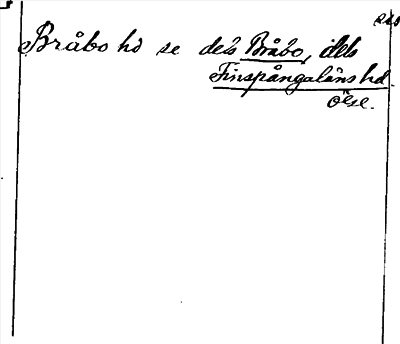 Bråbo hd se dels Bråbo, dels
Finspångaläns hd
ÖSe.